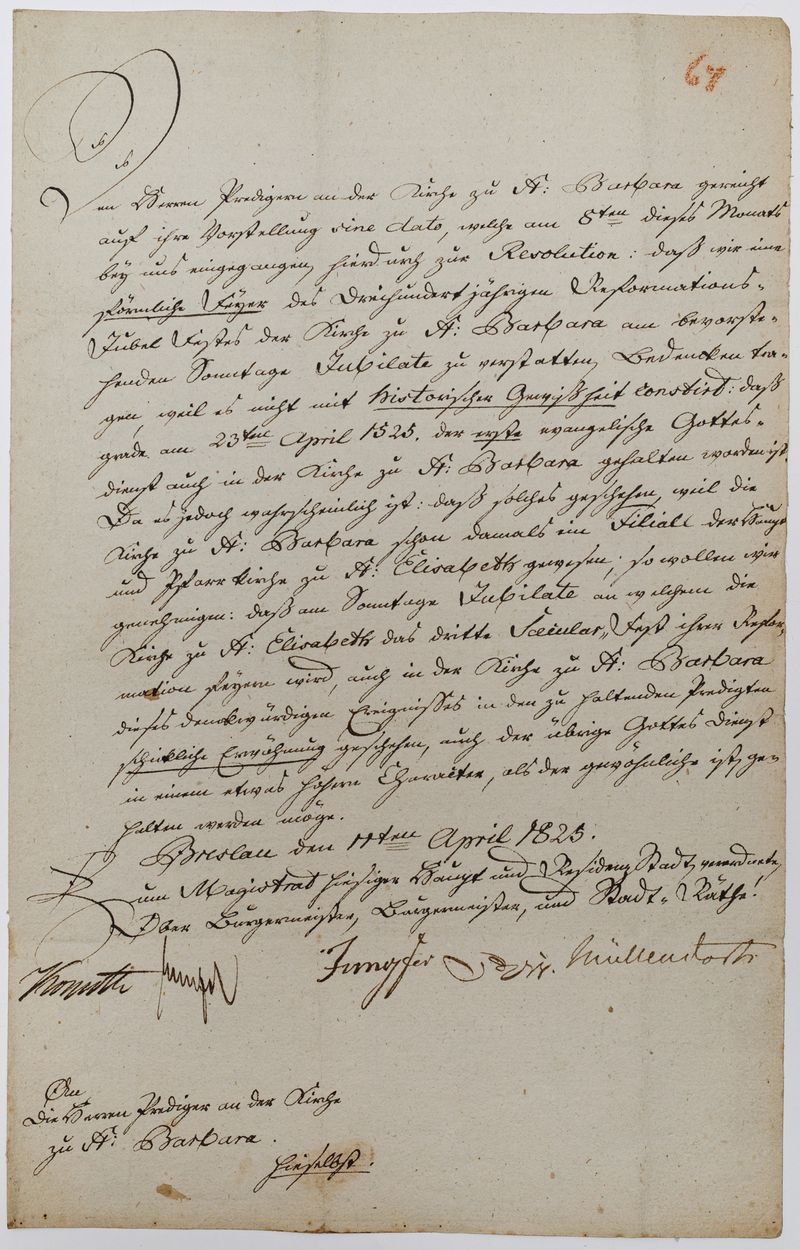 67
Den Herren Predigern an der Kirche zu St: Barbara gereicht
auf ihre Vorstellung sine dato, welche am 8ten dieses Monats
bey uns eingegangen, hierdurch zur Resolution: daß wir eine
förmliche Feyer des Dreihundertjährigen Reformations-
Jubel Festes der Kirche zu St: Barbara am bevorste-
henden Sonntage Jubilate zu verstatten, Bedencken tra-
gen, weil es nicht mit historischer Gewißheit constirt: daß
grade am 23ten April 1525. der erste evangelische Gottes-
dienst auch in der Kirche zu St: Barbara gehalten worden ist.
Da es jedoch wahrscheinlich ist: daß solches geschehen, weil die
Kirche zu St: Barbara schon damals im Filiale der Haupt
und Pfarrkirche zu St: Elisabeth gewesen; so wollen wir
genehmigen: daß am Sonntage Jubilate an welchem die
Kirche zu St: Elisabeth das dritte Saecular-Fest ihrer Refor-
mation feyern wird, auch in der Kirche zu St: Barbara
dieses denckwürdigen Ereignisses in den zu haltenden Predigten
schickliche Erwähnung geschehen, auch der übrige Gottes Dienst
in einem etwas hohern Character, als der gewöhnliche ist, ge-
halten werden möge.
Breslau den 11ten April 1825.
Zum Magistrat hiesiger Haupt und Residenz Stadt verordnete,
Ober Burgermeister, Burgermeister, und Stadt-Räthe!
Müllendorff
An
die Herren Prediger an der Kirche
zu St: Barbara.
hieselbst.